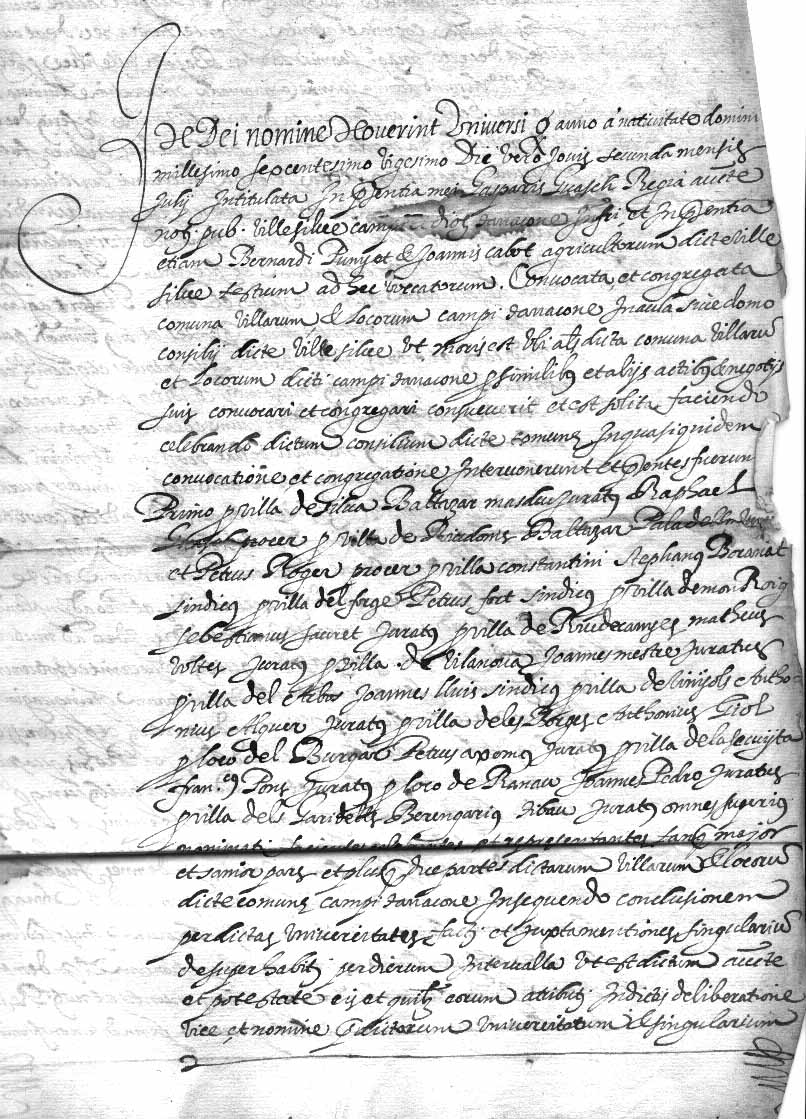 In Dei nomine Noverint Universi q anno a nativitate domini
millesimo sexcentesimo vigesimo Die vero Jovis secunda mensis
Julij Intitulata In pntia mei Gasparis Guasch Regia aucte
not. pub. Ville silve campi tarracone et In pntia
etiam Bernardi Punyet & Joannis cabot agricultorum dicte ville
silve testium ad hec vocatorum. Convocata et congregata
comuna villarum & Locorum campi tarracone In aula sive domo
consilij dicte ville silve ut moris est ubi als dicta comuna villaru
et Locorum dicti campi tarracone p similibus et alijs actibus & negotijs
suis convocari et congregari consueverit et est solita faciendo
celebrando dictum consilium dicte comunes In qua siquidem
convocatione et congregatione Intervenerunt et pntes fuerunt
Primo p villa de silva Baltazar masdeu juratus Raphael
procer p villa de Riudoms Baltazar
et Petrus Roger procer p villa constantini Stephanus Boranat
sindicus p villa del forge Petrus fort sindicus p villa de mon Roig
sebestianus sauret juratus p villa de Riudecanyes matheus
voltes juratus p villa de Vilanova Joannes mestre juratus
p villa del Arbos Joannes lluis sindicus p villa de vinyols Antho-
nius Alguer juratus p villa de les Borges Anthonius Giol
p loco del Burgar Petrus juratus p villa de la secuyta
fran.cus Pons juratus p loco de Ranau Joannes Pedro juratus
p villa dels Garidells Berengarius ribau juratus omnes superius
nominati facientes celebrantes et representantes tanq major
et sanior pars et plusq due partes dictarum villarum & locoru
dicte comunes campi tarracone Insequendo conclusionem
per dictas universitates factis et juxta mentiones singularium
desuper habitis per dierum Intervalla ut est dictum aucte
et potestate eis et quilt eorum attibutis In dictis deliberatione
vice et nomine pdictorum universitatum & singularium